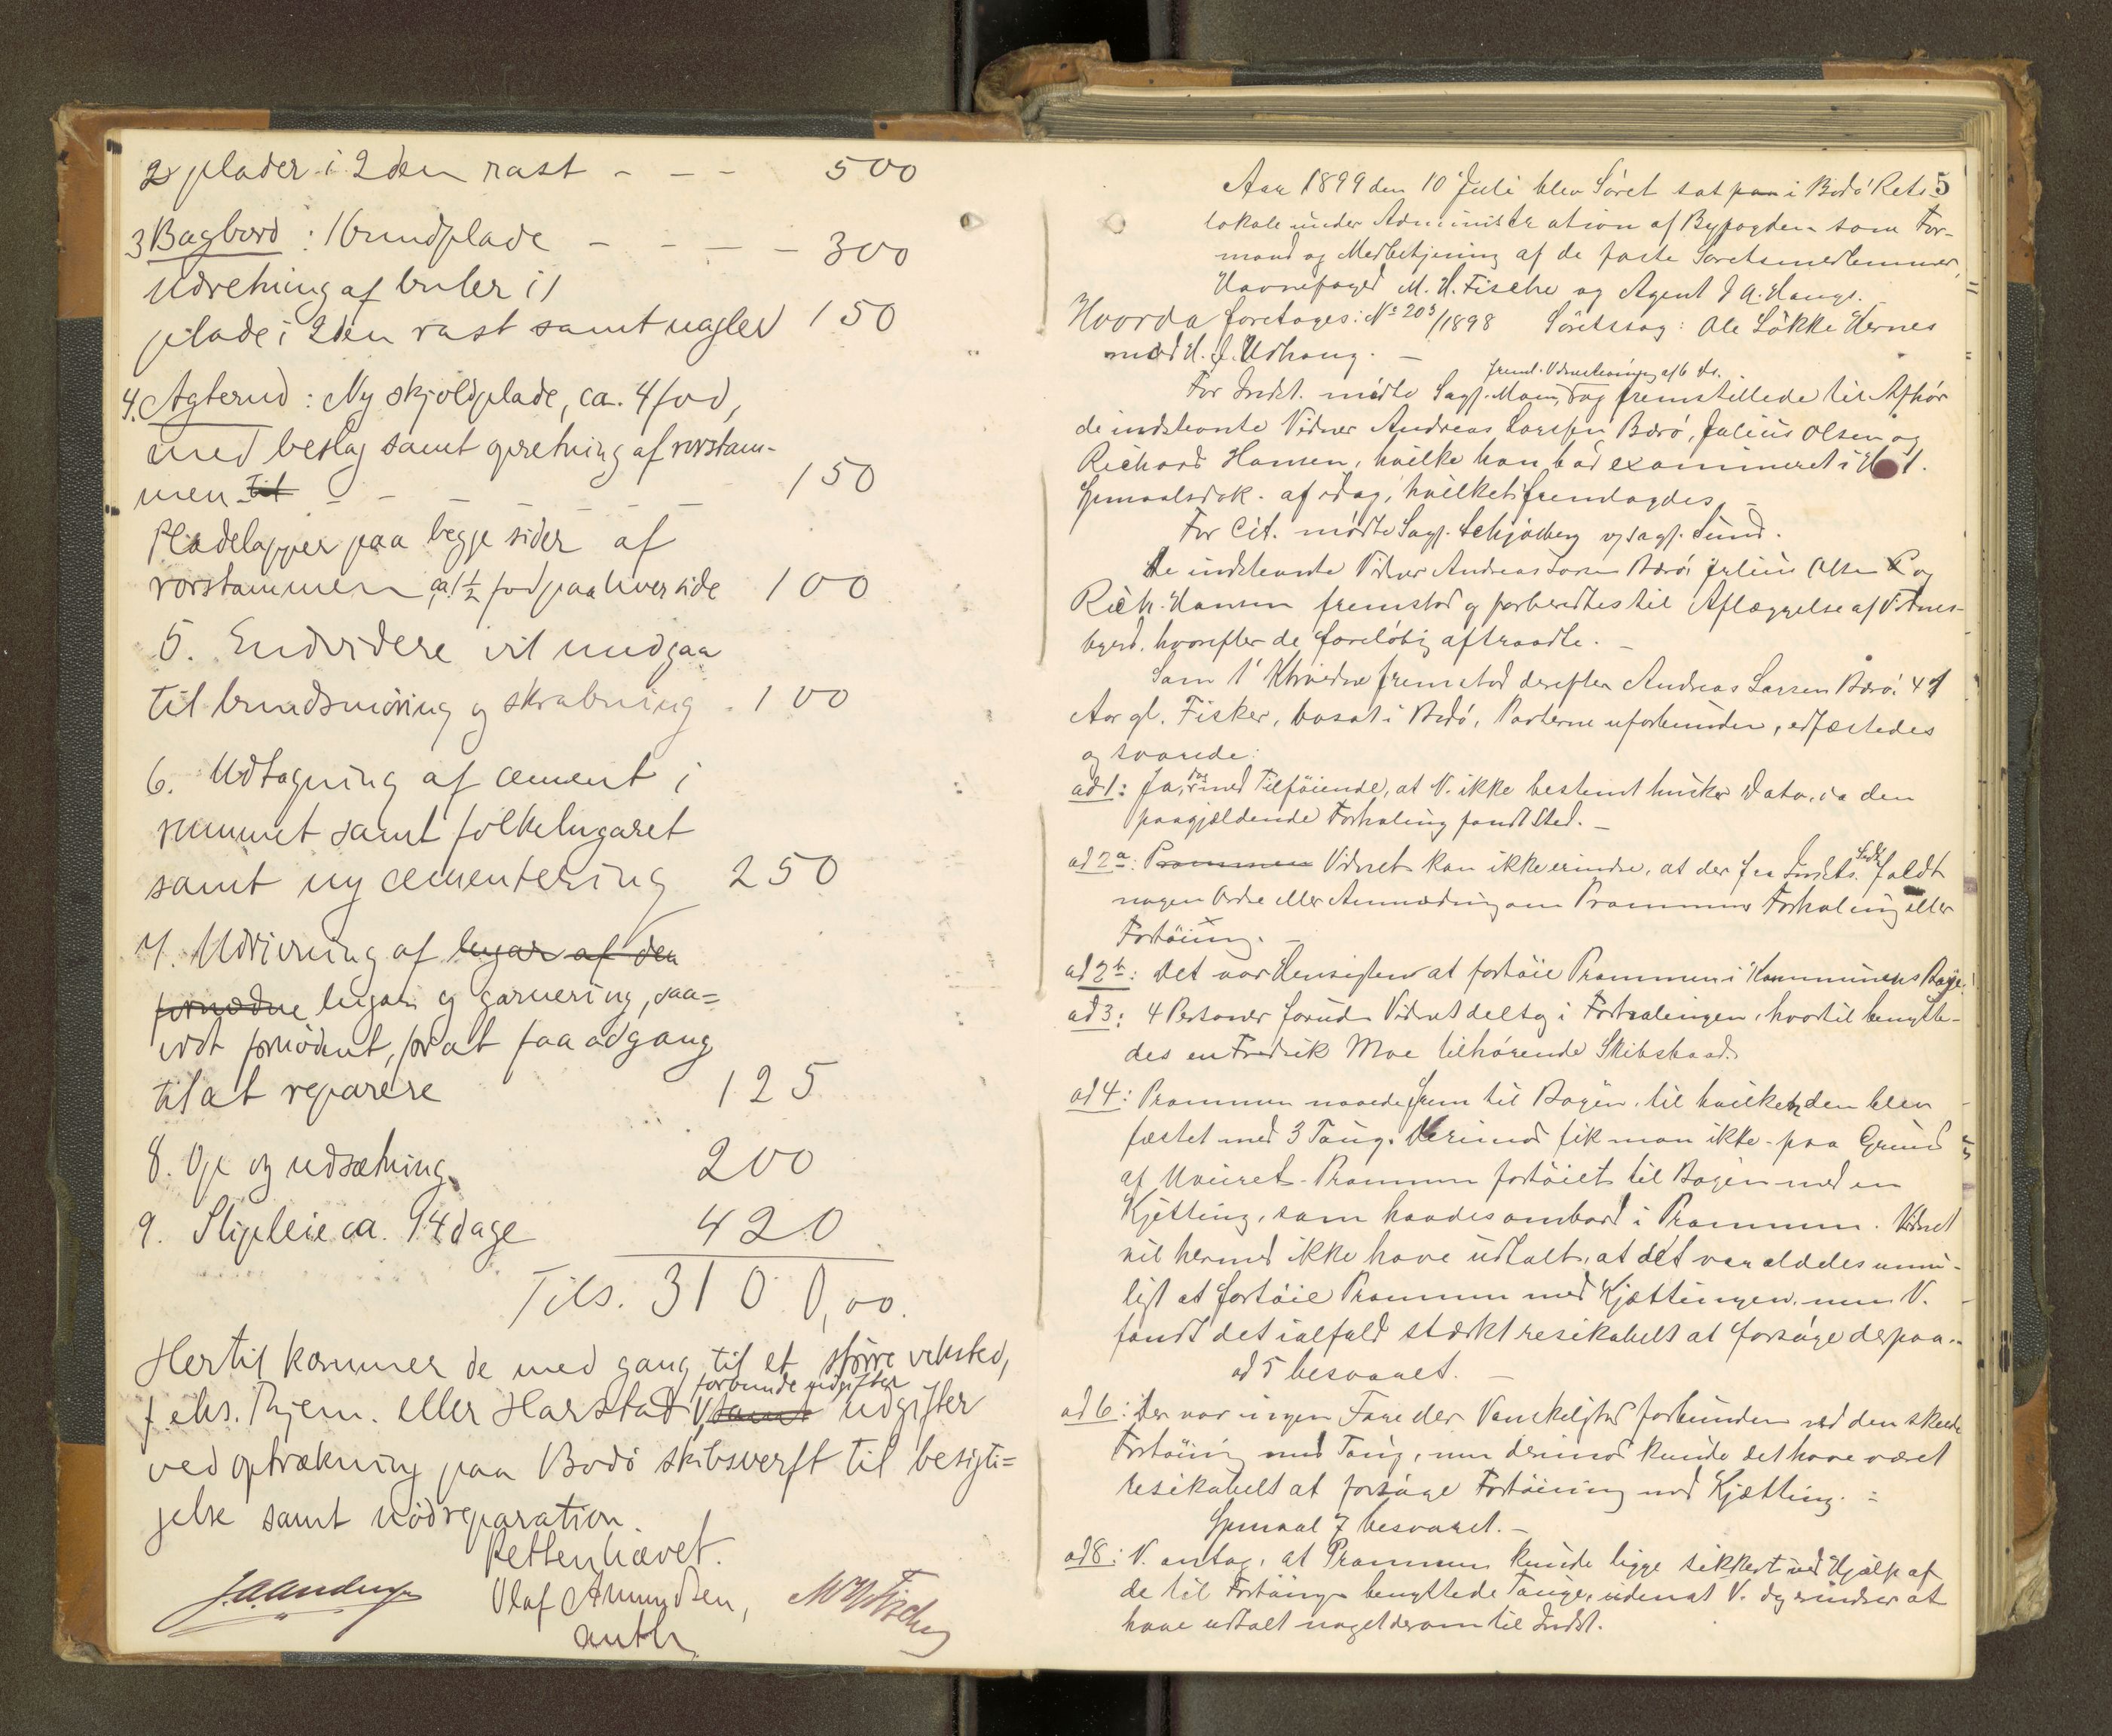 2 plader i 2den rast - - - 500
3 Bagbord: 1 bundplade - - - - 300
Udretning af buler i 1
plade i 2den rast samt nagler 150
4. Agterud: Ny skjoldplade, ca. 4 fod,
med beslag samt opretning af rorstam-
men Til - - - - - - 150
Pladelapper paa begge sider af
rorstammen ca. 1½ fod paa hver side 100
5. Endvidere vil medgaa
til bundsmøring og skrabning. 100
6. Udtagning af cement i
rummet samt folkelugaret
samt ny cementering 250
7. Udrivning af lugar af den
fornødne lugar og garnering, saa=
vidt fornødent, for at faa adgang
til at reparere 125
8. Op og udsætning. 200
9. Slipleie ca. 14 dage 420
Tils. 3100,00.
Hertil kommer de med gang til et større veksted,
forbundne udgifter
f. eks. Thjem. eller Harstad, samt udgifter
ved optrækning paa Bodø skibsverft til besigti=
gelse samt nødreparation.
Retten hævet.
Olaf Amundsen,
auth
M H Fischer
Aar 1899 den 10 Juli blev Søret sat paa i Bodø Rets 5
lokale under Administration af Byfogden som For-
mand og Medbetjening af de faste Søretsmedlemmer,
Havnefoged M. H. Fischer og Agent J A. Hauge.
Hvorda foretoges: No 203/1898 Søretssag: Ole Løkke Hernes
mod H. J. Udhaug. -
freml. Vidnestevning af 6 ds.
For Indst. mødte Sagf. Moum, og fremstillede til Afhør
de indstevnte Vidner Andreas Larsen Bærø, Julius Olsen og
Richard Hansen, hvilke han bad examineret i H 1.
Spmaalsdok. af idag, hvilket fremlagdes. -
For Cit. mødte Sagf. Schjølberg v/ Sagf. Sund.
De indstevnte Vidner Andreas Larsen Bærø, Julius Olsen og
Rich. Hansen fremstod og forberedtes til Aflæggelse af Vidnes-
byrd, hvorefter de foreløbig aftraadte. -
Som 1' Vidne fremstod derefter Andreas Larsen Bærø, 41
Aar gl. Fisker, bosat i Bodø, Parterne uforbunden, edfæstedes
og svarede:
ad 1: Ja, dog med Tilføiende, at V. ikke bestemt husker Dato, da den
paagjældende Forhaling fandt Sted. -
ad 2a: Prammen Vidnet kan ikke erindre, at der fra Indsts. Side faldt
nogen Ordre eller Anmodning om Prammens Forhaling eller
Fortøining. -
ad 2b: Det var Hensigten at fortøie Prammen i Kommunens Bøye.
ad 3: 4 Personer foruden Vidnet deltog i Forhalingen, hvortil benytte-
des en Fredrik Moe tilhørende Skibsbaad.
ad 4: Prammen naaede frem til Bøyen, til hvilken den blev
fæstet med 3 Taug. Derimod fik man ikke - paa Grund
af Uveiret - Prammen fortøiet til Bøyen med en
Kjetting, som havdes ombord i Prammen. Vidnet
vil hermed ikke have udtalt, at det var aldeles umu-
ligt at fortøie Prammen med Kjættingen, men V.
fandt det ialfald stærkt resikabelt at forsøge derpaa.-
ad 5 besvaret. -
ad 6: Der var ingen Fare eller Vanskelighed forbunden ved den skede
Fortøining med Taug, men derimod kunde det have været
resikabelt at forsøge Fortøining med Kjætting. =
Spmaal 7 besvaret. -
ad 8: V. antog, at Prammen kunde ligge sikkert ved Hjælp af
de til Fortøining benyttede Tauge, uden at V. dog erindrer at
have udtalt noget derom til Indst.